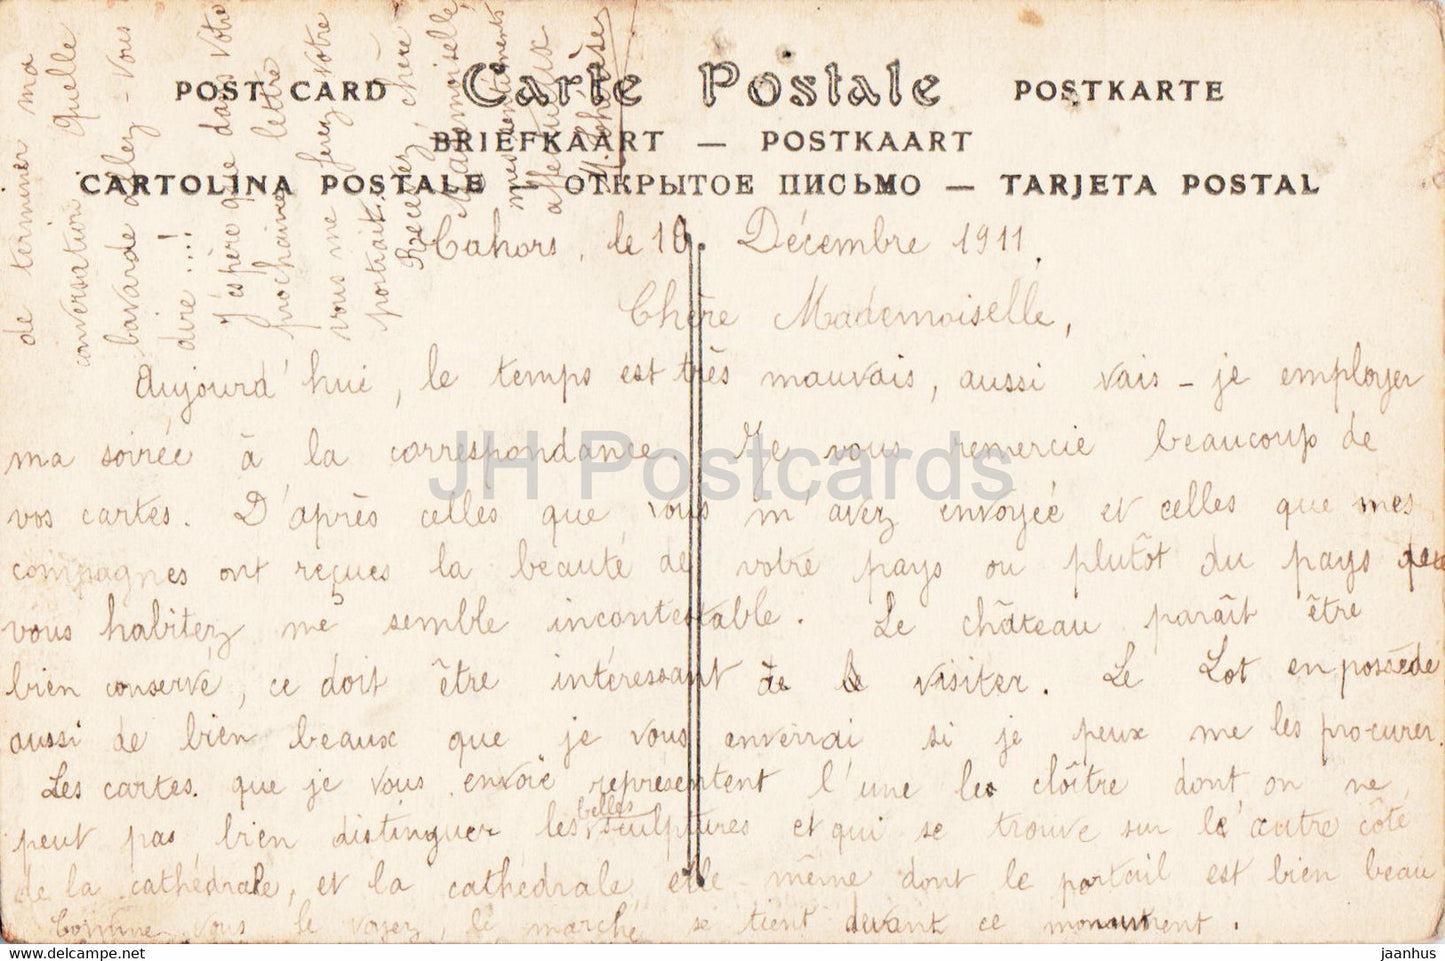 POST CARD Carte Postale POSTKARTE
BRIEFKAART — POSTKAART
CARTOLINA POSTALE — ОТКРЫТОЕ ПИСЬМО — TARJETA POSTAL
Cahors, le 10. Décembre 1911.
Chère Mademoiselle,
Aujourd'hui, le temps est très mauvais, aussi vais-je employer
ma soirée à la correspondance. Je vous remercie beaucoup de
vos cartes. D'après celles que vous m'avez envoyéé et celles que mes
compagnes ont reçues la beauté de votre pays ou plutôt du pays que
vous habitez me semble incontestable. Le château paraît être
bien conservé, ce doit être intéressant de le visiter. Le Lot en possède
aussi de bien beaux que je vous enverrai si je peux me les procurer.
Les cartes que je vous envoie représentent l'une les cloître dont on ne
peut pas bien distinguer les belles sculptures et qui se trouve sur l'autre côté
de la cathédrale, et la cathédrale elle-même dont le portail est bien beau
Comme vous le voyez le marché se tient devant ce monument.
de terminer ma
conversation Quelle
bavarde allez-vous
dire...!
J'espère que dans votre
prochaine lettre
vous me ferez votre
portrait.
Recevez, chère
Mademoiselle
mes sentiments
affectueux
JH Postcards
jaanhus
www.jhpostcards.com